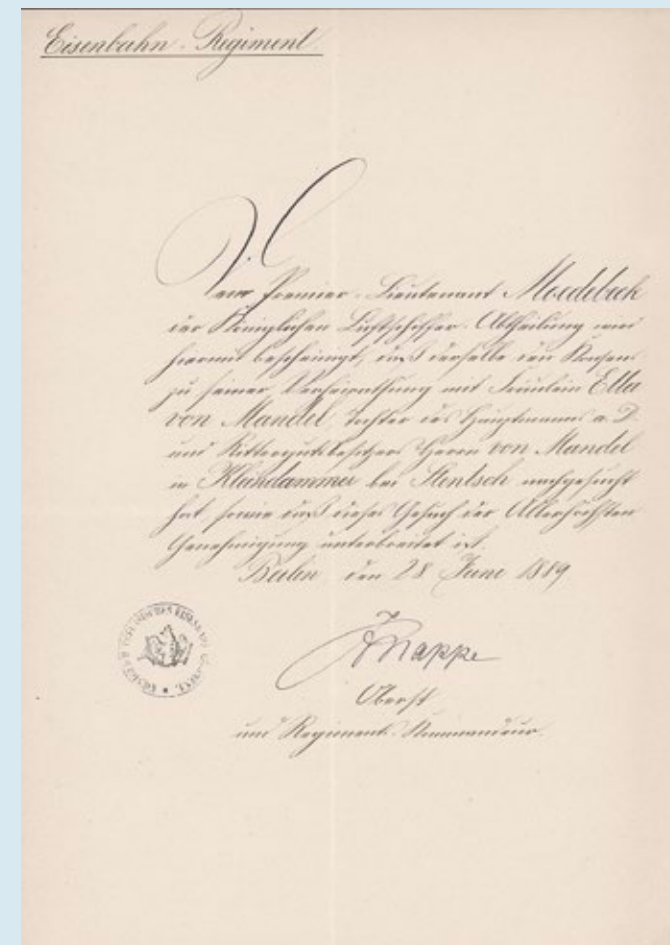 Eisenbahn-Regiment.
Dem Premier-Lieutenant Moedebeck
der Königlichen Luftschiffer-Abtheilung wird
hiermit bescheinigt, daß derselbe den Konsens
zu seiner Verheirathung mit Fräulein Ella
von Mandel, Tochter des Hauptmanns a. D.
und Rittergutsbesitzers Herrn von Mandel
in Kleindammer bei Stentsch nachgesucht
hat, sowie daß dieses Gesuch der Allerhöchsten
Genehmigung unterbreitet ist.
Berlin, den 28 Juni 1889.
Knappe
Oberst
und Regiments-Kommandeur.